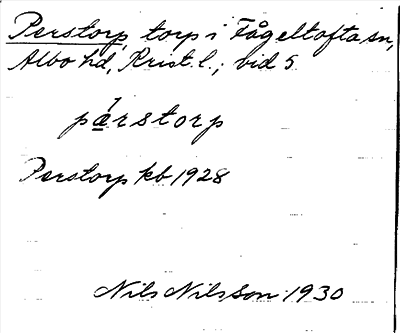 Perstorp, torp i Fågeltofta sn,
Albo hd, Krist. l.; vid 5.
pærstorp
Perstorp kb 1928
Nils Nilsson 1930